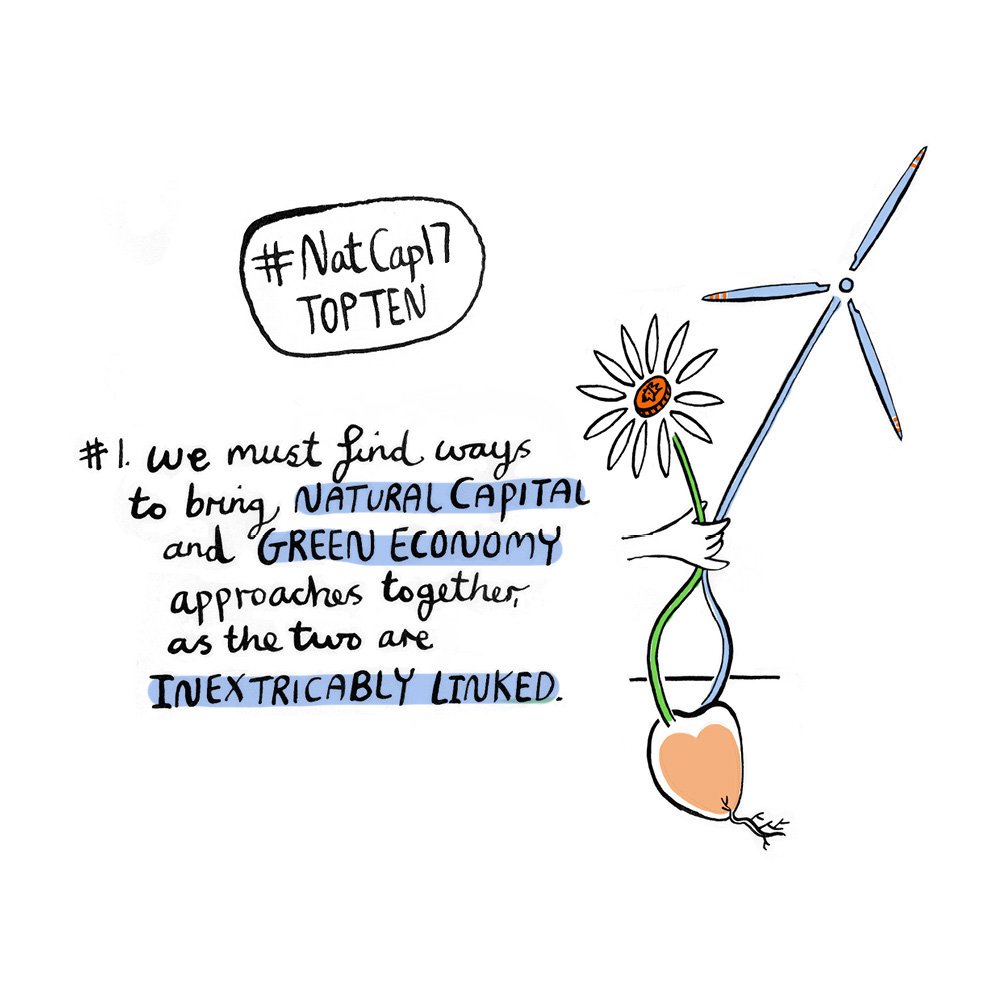 #NatCap17
TOP TEN
#1. we must find ways
to bring NATURAL CAPITAL
and GREEN ECONOMY
approaches together,
as the two are
INEXTRICABLY LINKED.